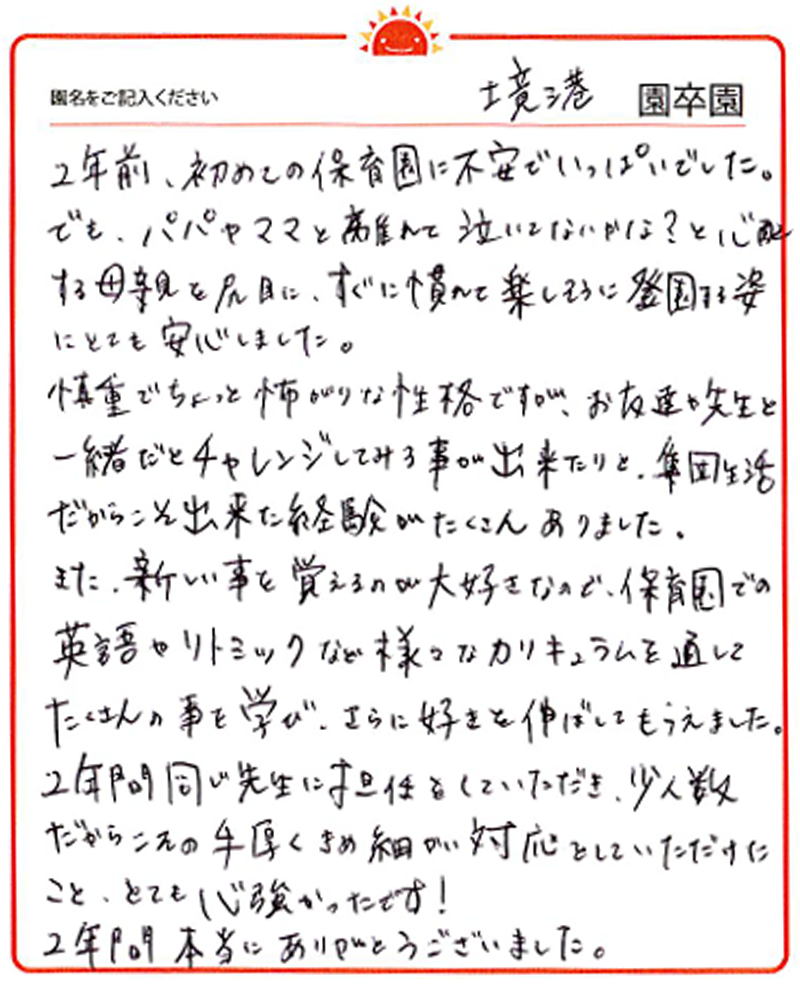 園名をご記入ください 境港 園卒園
2年前、初めての保育園に不安でいっぱいでした。
でも、パパやママと離れて泣いてないかな?と心配
する母親を尻目に、すぐに慣れて楽しそうに登園する姿
にとても安心しました。
慎重でちょっと怖がりな性格ですが、お友達や先生と
一緒だとチャレンジしてみる事が出来たりと、集団生活
だからこそ出来た経験がたくさんありました。
また、新しい事を覚えるのが大好きなので、保育園での
英語やリトミックなど様々なカリキュラムを通して
たくさんの事を学び、さらに好きを伸ばしてもらえました。
2年間同じ先生に担任をしていただき、少人数
だからこその手厚くきめ細かい対応をしていただけた
こと、とても心強かったです!
2年間本当にありがとうございました。